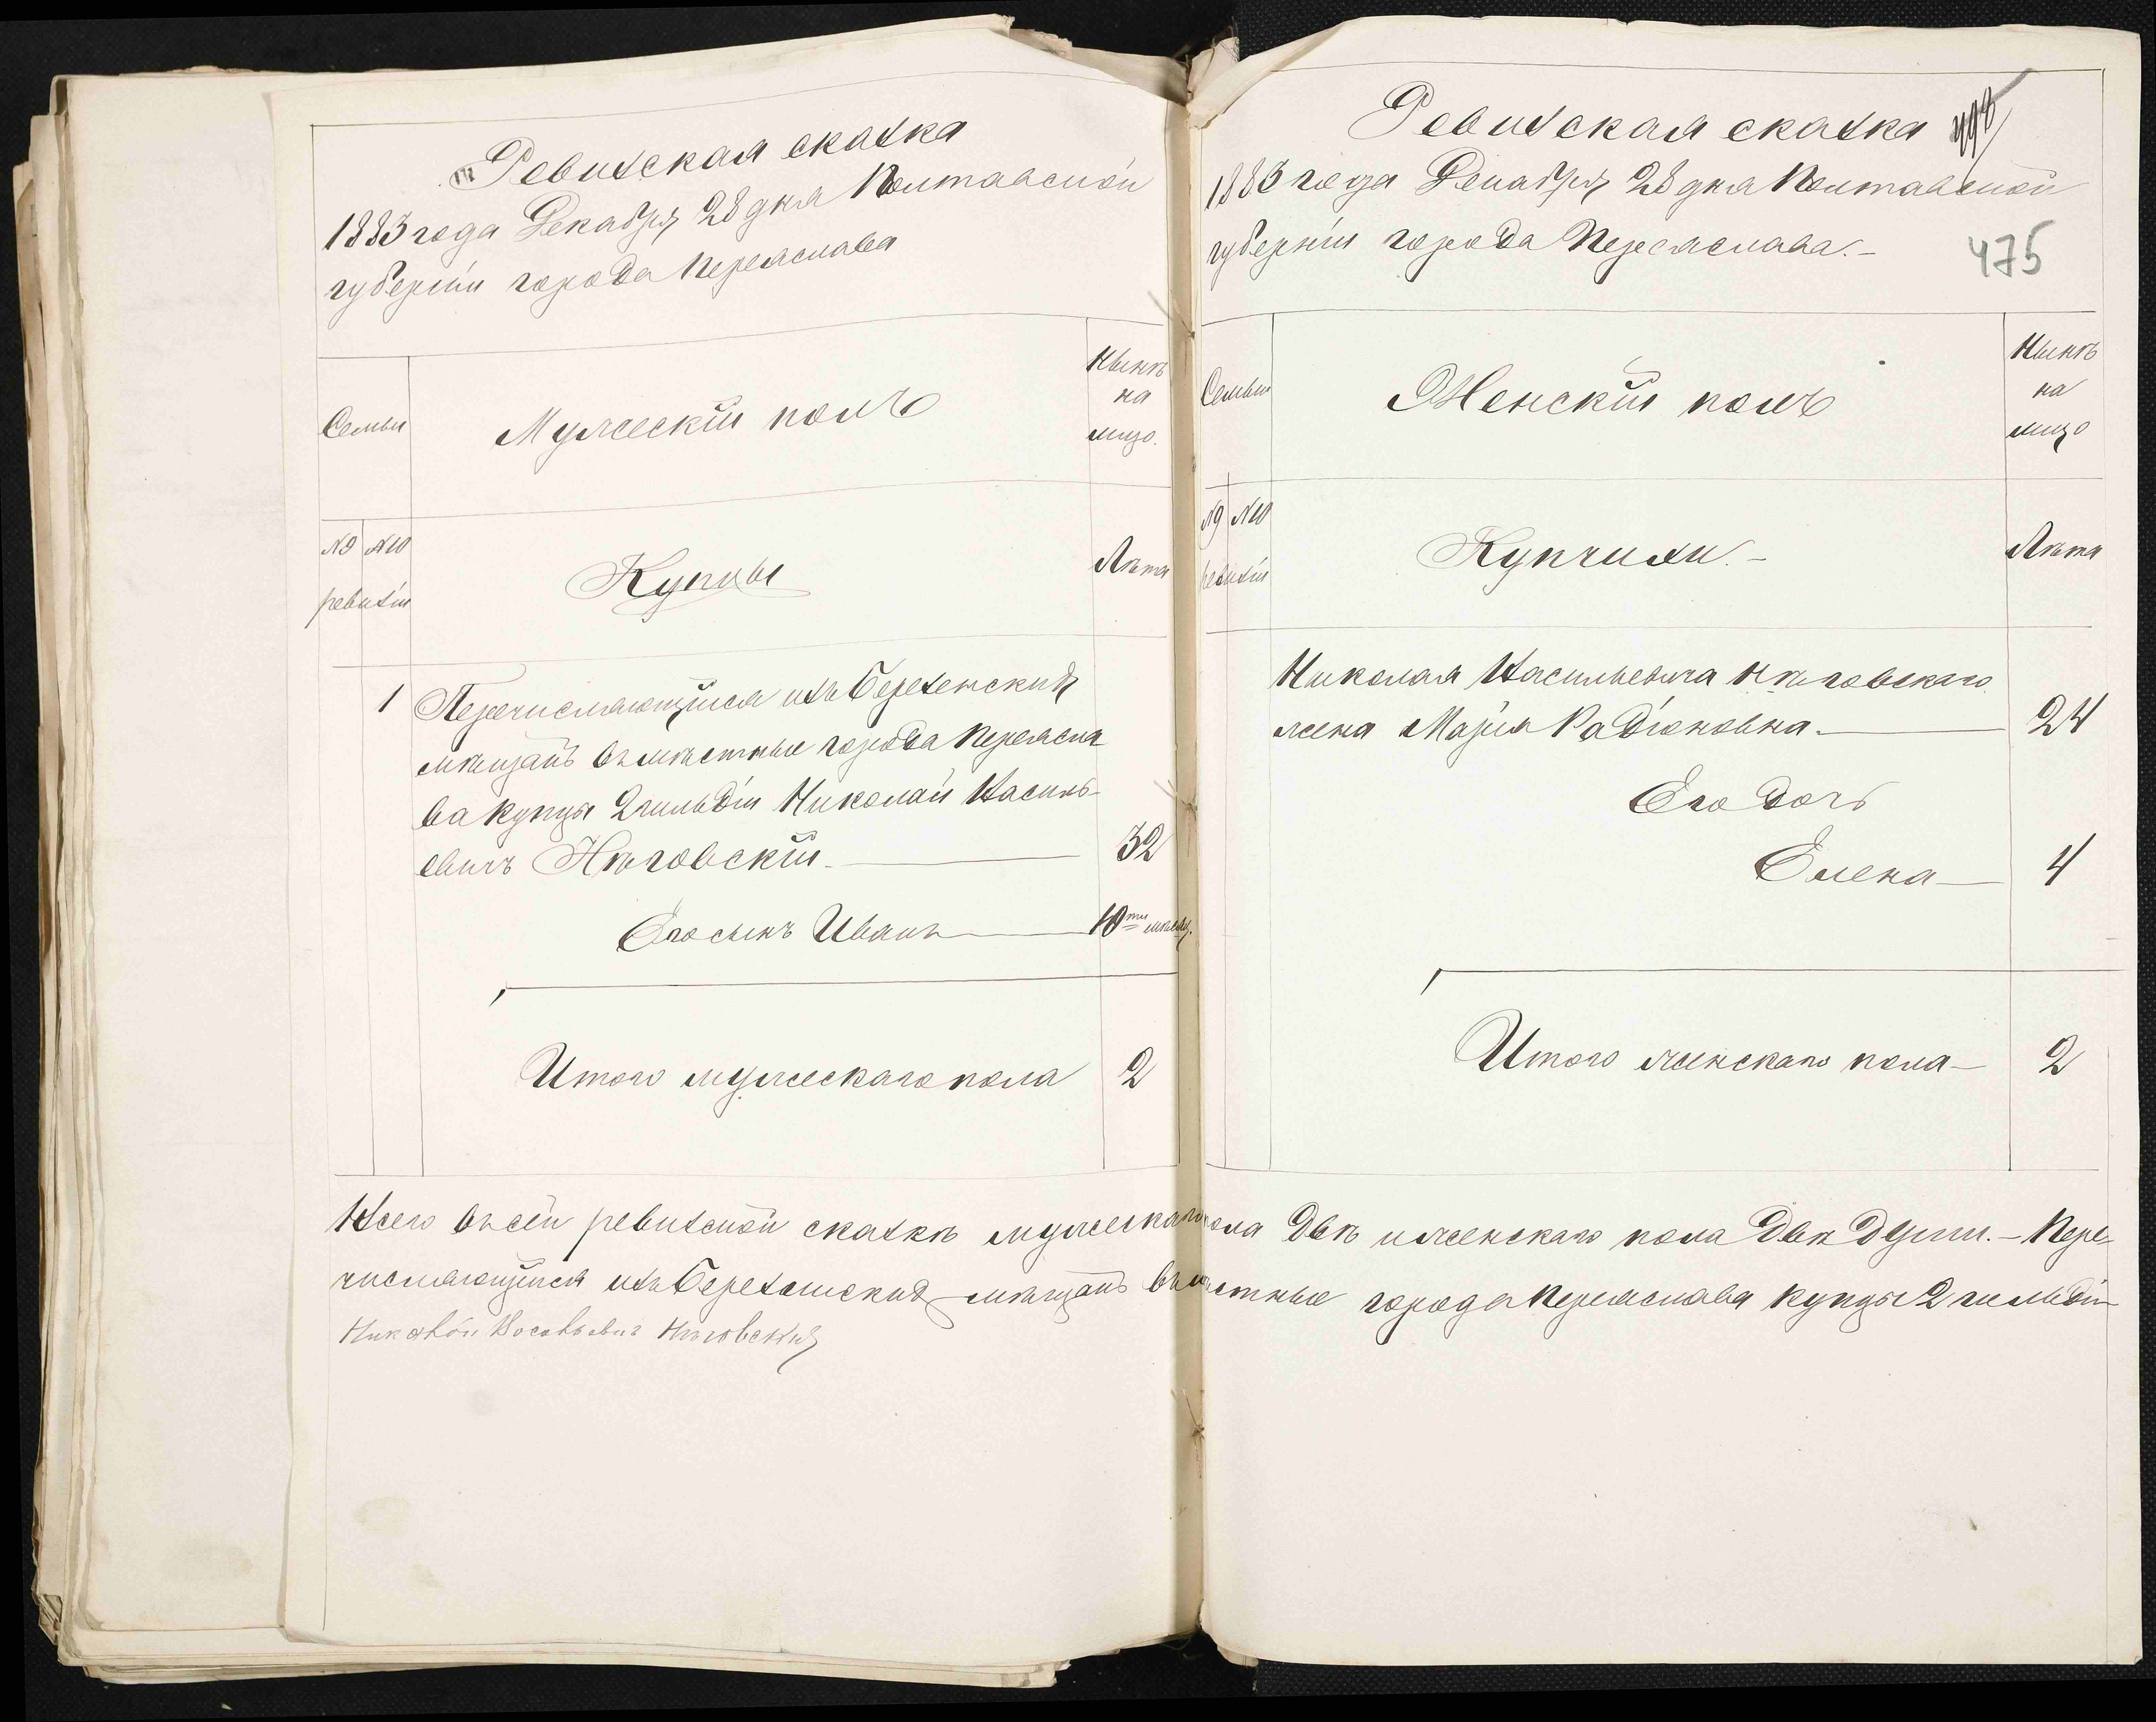 Ревизская сказка
1883 года Декабря 28 дня Полтавской
губерніи города Переяслава
Семьи
Мужескій полъ
Нынѣ
на
лицо.
№9 №10
ревизіи
Купцы
Лѣта
1 Перечисляющійся изъ Березенскихъ
мѣщанъ въ мѣстные города Переясла
ва купцы 2 гильдіи Николай Василь-
евичъ Нѣговскій 32
Его сынъ Иванъ 10ти мѣсяц.
Итого мужескаго пола 2
Ревизская сказка
475
1883 года Декабря 28 дня Полтавской
губерніи города Переяслава.-
Семьи
Женскій полъ
Нынѣ
на
лицо
№9 №10
ревизіи
Купчихи.-
Лѣта
Николая Васильевича Нѣговскаго
жена Марія Радіоновна. 24
Его дочь
Елена 4
Итого женскаго пола 2
Всего въ сей ревизской сказкѣ мужескаго пола двѣ и женскаго пола двѣ души. - Пере-
числяющійся изъ Березенскихъ мѣщанъ въ мѣстные города Переяслава купцы 2 гильдіи
Николай Васильевич Нѣговскій